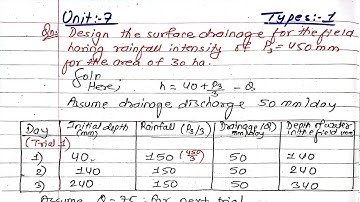 Unit:-7 Types:-1
Qn: Design the surface drainage for the field
having rainfall intensity of P3 = 450 mm
for the area of 30 ha.
Soln
Here; h = 40 + P3/3 - Q
Assume drainage discharge 50 mm/day
Day Initial depth (mm) Rainfall (P3/3) Drainage (Q) mm/day Depth of water in the field (mm)
(Trial-1)
1) 40 150 (450/3) 50 140
2) 140 150 50 240
3) 240 150 50 340
Assume Q = 75 for next trial